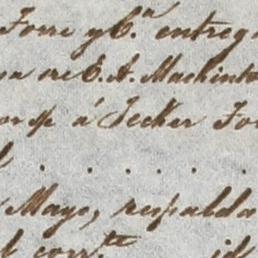 Torre y C.ª entreg
E. A. Mackinto
á Jecker Tor
Mayo, respalda
corr.te id